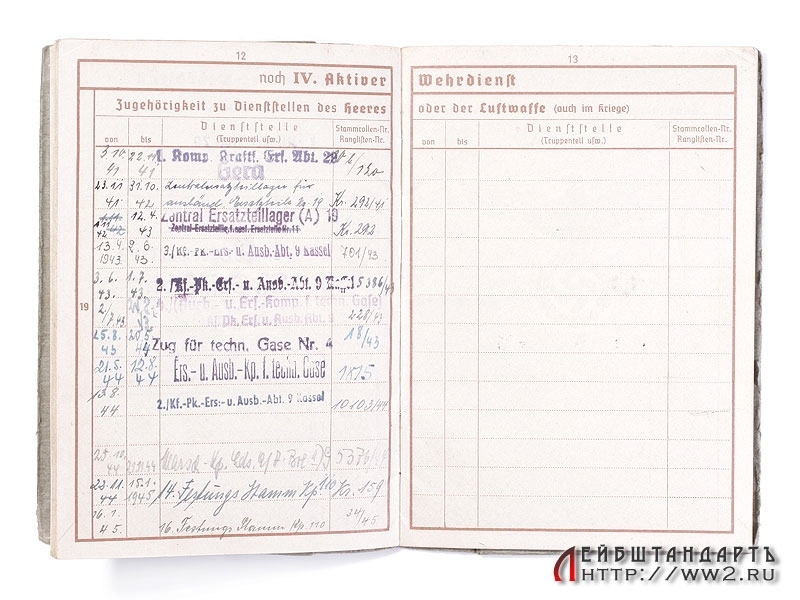 12
noch IV. Aktiver
Zugehörigkeit zu Dienststellen des Heeres
von
bis
Dienststelle
(Truppenteil usw.)
Stammrollen-Nr.
Ranglisten-Nr.
19
3.10. 41
22.11. 41
1. Komp. Kraftf. Ers. Abt. 29
Gera
120
23.11 41
31.10. 42
Zentralersatzteillager für
ausländ. Ersatzteile Nr. 19
Kr. 292/41
42
12.4. 43
Zentral Ersatzteillager (A) 19
Kr. 292
13.4. 1943
2.6. 43.
3./Kf.-Pk.-Ers.- u. Ausb.-Abt. 9 Kassel
701/43
3.6. 43.
1.7. 43.
2./Kf.-Pk.-Ers.- u. Ausb.-Abt. 9 Kassel
5386/43
2/7.43
(Ausb.- u. Ers.-Komp. f. techn. Gase)
Kf. Pk. Ers. u. Ausb. Abt. 9
228/43
25.8. 43
20.5. 44
Zug für techn. Gase Nr. 4
18/43
21.5. 44
12.8. 44
Ers.- u. Ausb.-Kp. f. techn. Gase
1815
13.8. 44
2./Kf.-Pk.-Ers.- u. Ausb.-Abt. 9 Kassel
10103/44
25.10. 44
21.11.44
Marsch-Kp.
5376/44
22.11. 44
15.1. 1945
14. Festungs Stamm Kp. 110
Kr. 159
16.1. 45.
16. Festungs Stamm Kp. 110
34/45
13
Wehrdienst
oder der Luftwaffe (auch im Kriege)
von
bis
Dienststelle
(Truppenteil usw.)
Stammrollen-Nr.
Ranglisten-Nr.
ЛЕЙБШТАНДАРТЪ
HTTP://WW2.RU